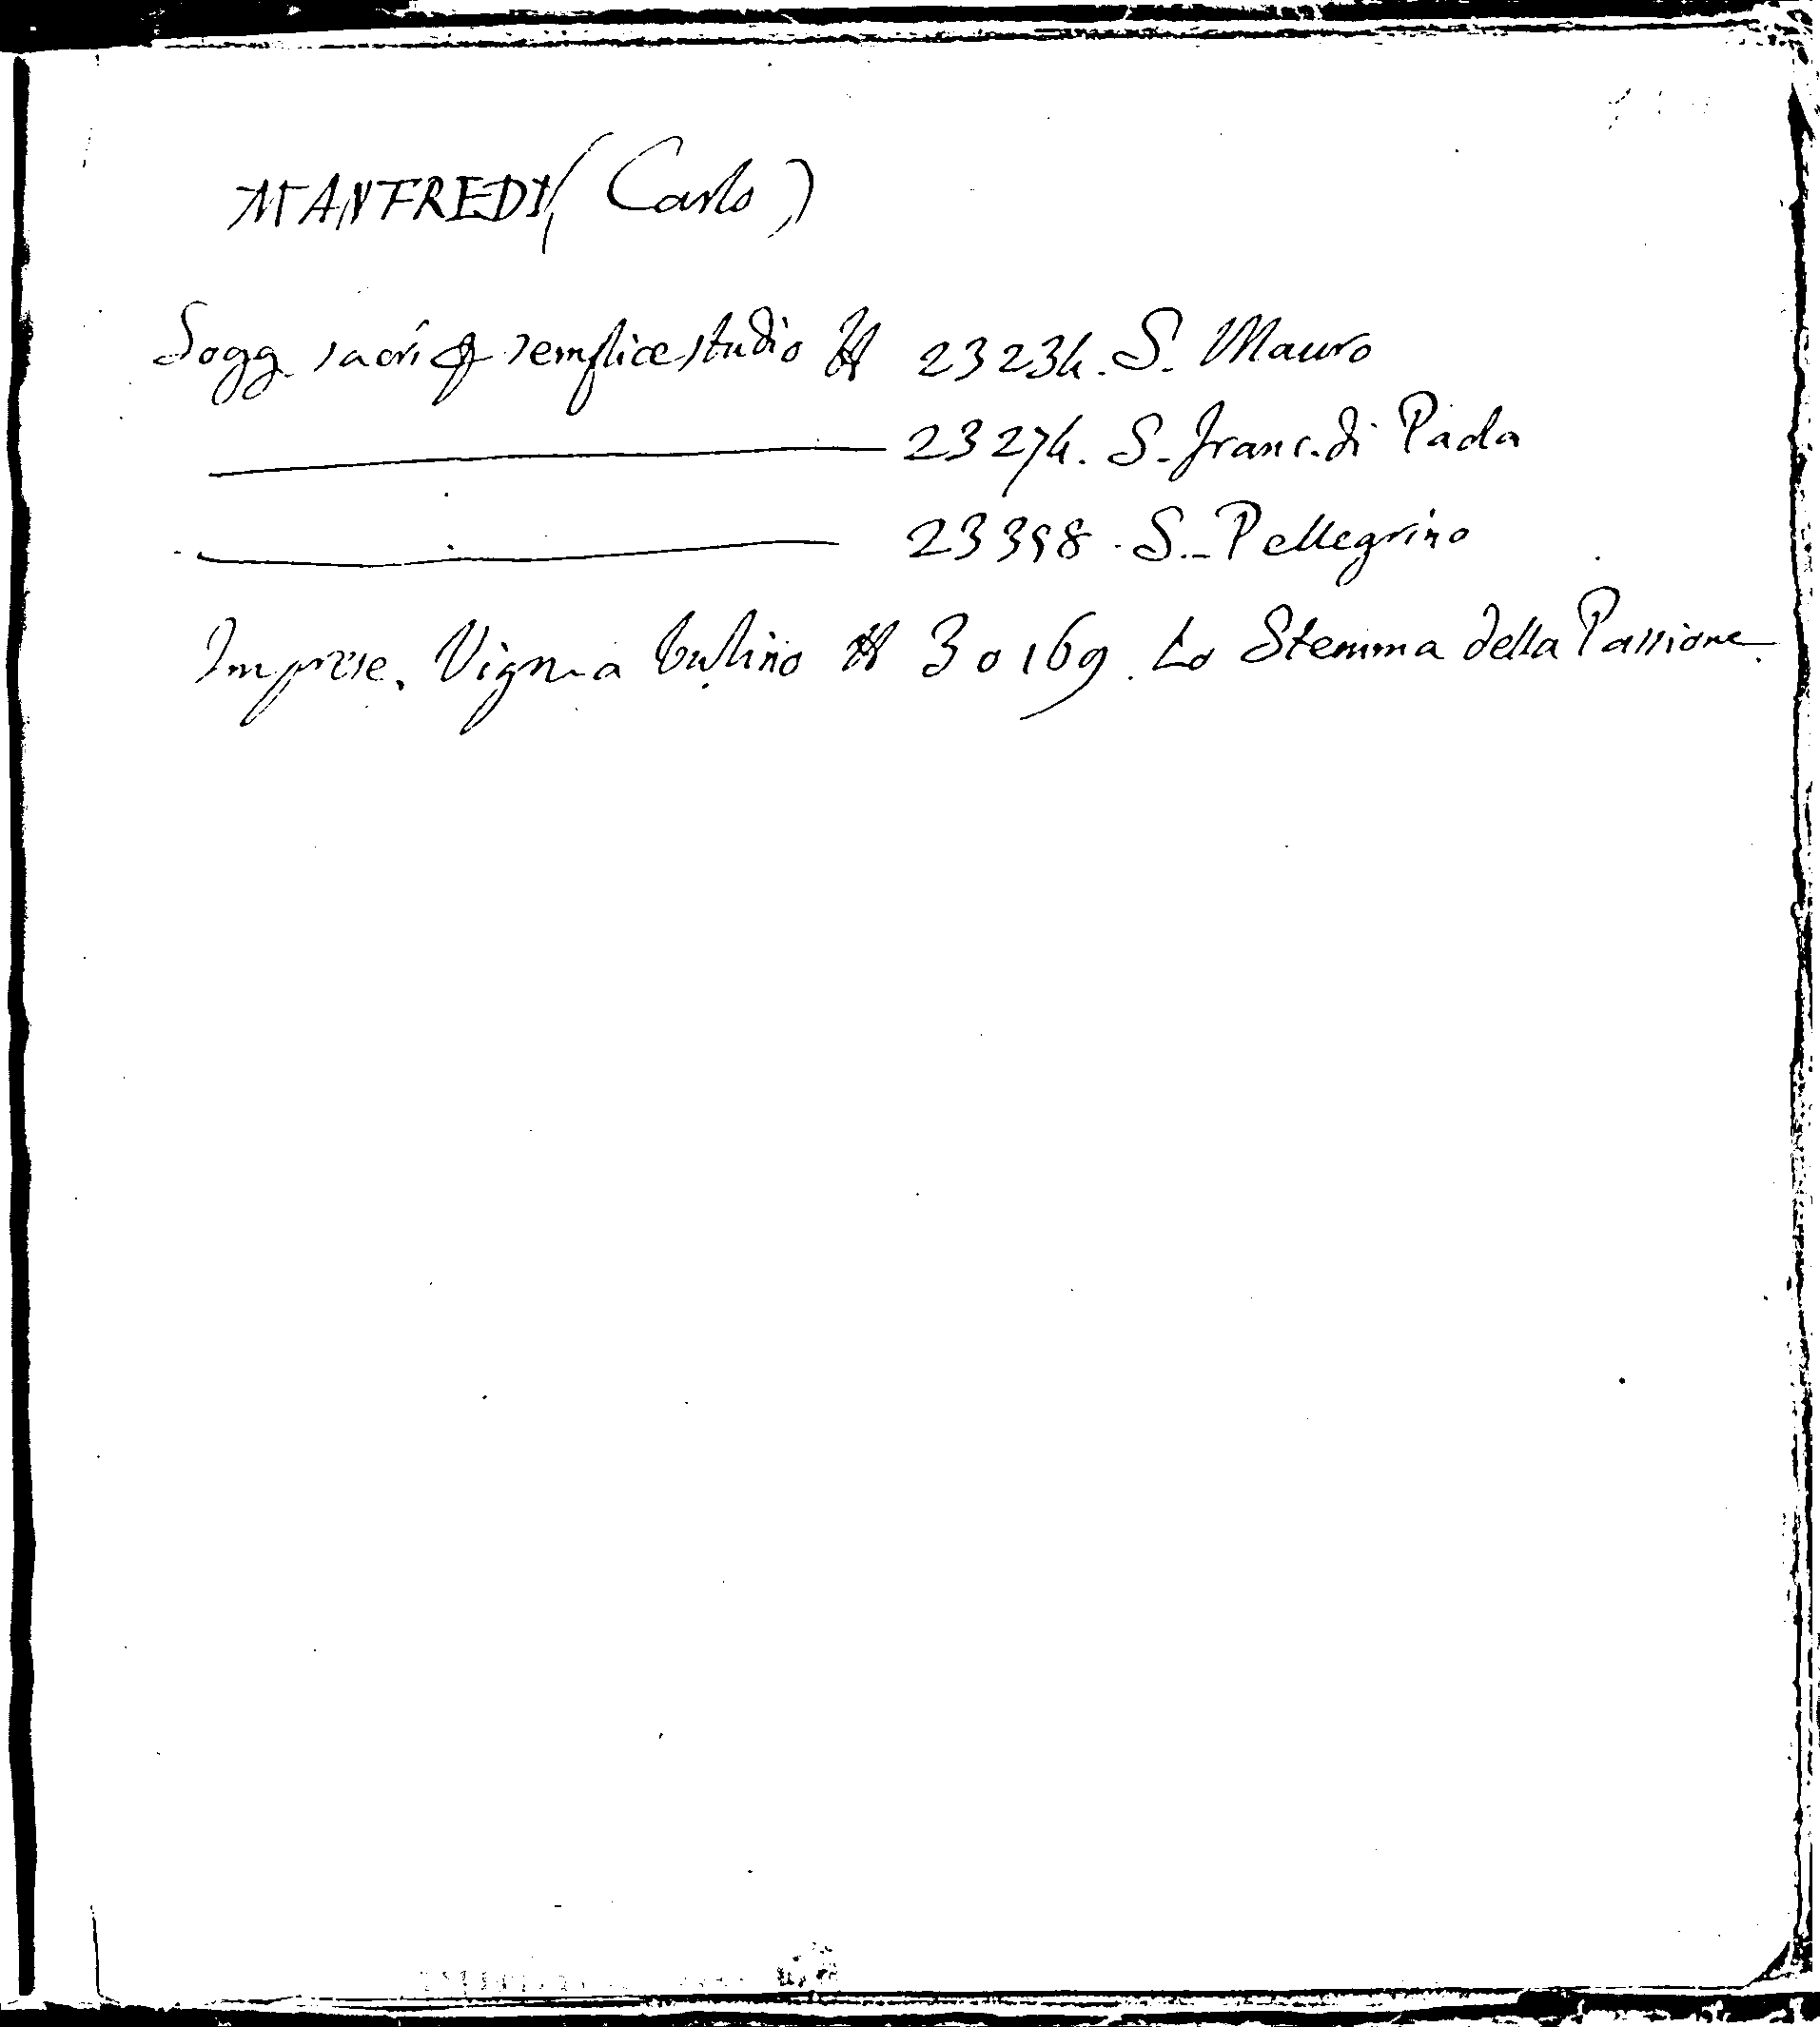 MANFREDI (Carlo)
Sogg. sacri p semplice studio # 23234. S. Mauro
23274. S. Franc. di Paola
23398. S. Pellegrino
Imprese. Vigna bulino # 30169. Lo Stemma della Passione.